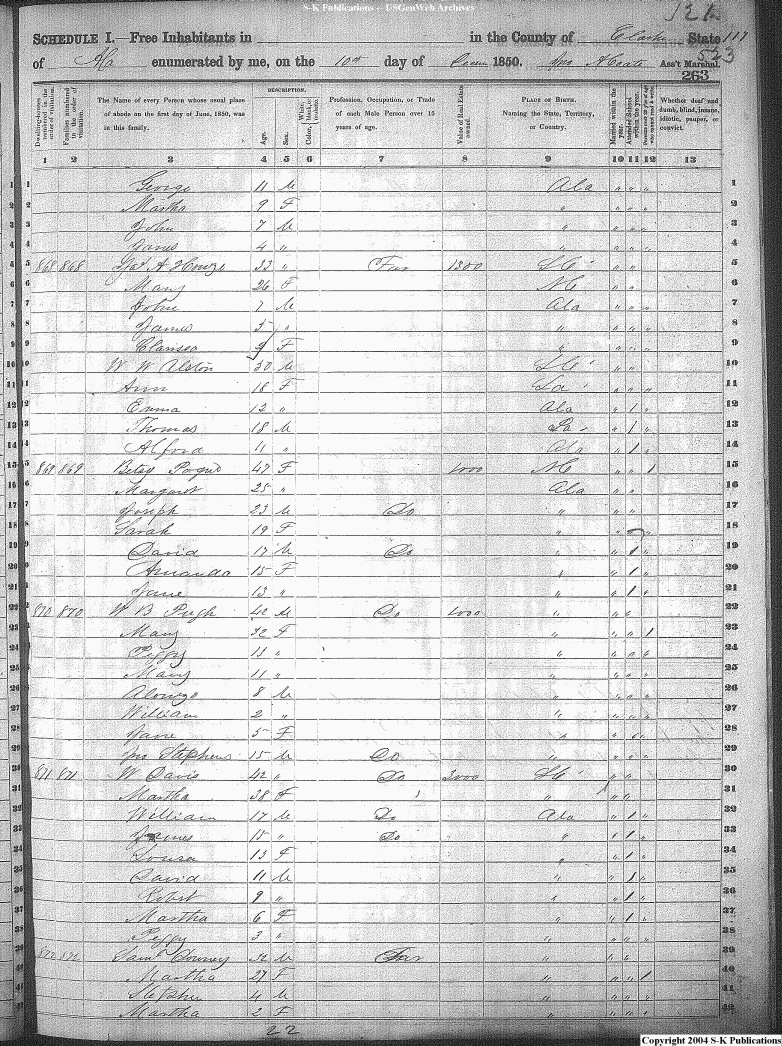 S-K Publications -- USGenWeb Archives
121
SCHEDULE I.—Free Inhabitants in in the County of Clarke State 117
of Ala enumerated by me, on the 10th day of 1850. Ass't Marshal.
523
263
Dwelling-houses numbered in the order of visitation.
Families numbered in the order of visitation.
The Name of every Person whose usual place of abode on the first day of June, 1850, was in this family.
DESCRIPTION.
Age.
Sex.
White, Color, black, or mulatto.
Profession, Occupation, or Trade of each Male Person over 15 years of age.
Value of Real Estate owned.
PLACE OF BIRTH. Naming the State, Territory, or Country.
Married within the year.
Attended School within the year.
Persons over 20 y'rs of age who cannot read & write.
Whether deaf and dumb, blind, insane, idiotic, pauper, or convict.
1 2 3 4 5 6 7 8 9 10 11 12 13
1 George 11 M Ala " " " 1
2 Martha 9 F " " " " 2
3 John 7 M " " " " 3
4 James 4 " " " " " 4
5 868 868 A Howze 33 " Far 1300 SC " " 5
6 Mary 26 F NC " " 6
7 John 7 M Ala " " 7
8 James 5 " " " " " 8
9 Clarissa F " " " " 9
10 W W Alston 30 M SC " " 10
11 Ann 18 F " " " 11
12 Emma 12 " Ala " 1 " 12
13 Thomas 18 M " 1 " 13
14 Alford 11 " Ala " 1 " 14
15 869 869 Betsy Pogue 47 F 1000 NC " " 1 15
16 Margaret 25 " Ala " " 16
17 Joseph 23 M Do " " " 17
18 Sarah 19 F " " " 18
19 David 17 M Do " " 1 " 19
20 Amanda 15 F " " 1 " 20
21 Jane 13 " " " 1 " 21
22 870 870 W B Pugh 42 M Do 1000 " " " 22
23 Mary 32 F " " " 1 23
24 Peggy 11 " " " " " 24
25 Mary 11 " " " " " 25
26 Alonzo 8 M " " " " 26
27 William 2 " " " " " 27
28 Jane 5 F " " " " 28
29 Jno Stephens 15 M Do " " " " 29
30 871 871 W Davis 42 " Do 3000 SC " " 30
31 Martha 38 F " " " 31
32 William 17 M Do Ala " 1 " 32
33 James 15 " Do " " 1 " 33
34 Louisa 13 F " " 1 " 34
35 David 11 M " " 1 " 35
36 Robt 9 " " " 1 " 36
37 Martha 6 F " " 1 " 37
38 Peggy 3 " " " " " 38
39 872 872 Saml Downey 32 M Far " " " 39
40 Martha 27 F " " " 1 40
Stephen 4 M " " " " 41
Martha 2 F " " " " 42
22
Copyright 2004 S-K Publications